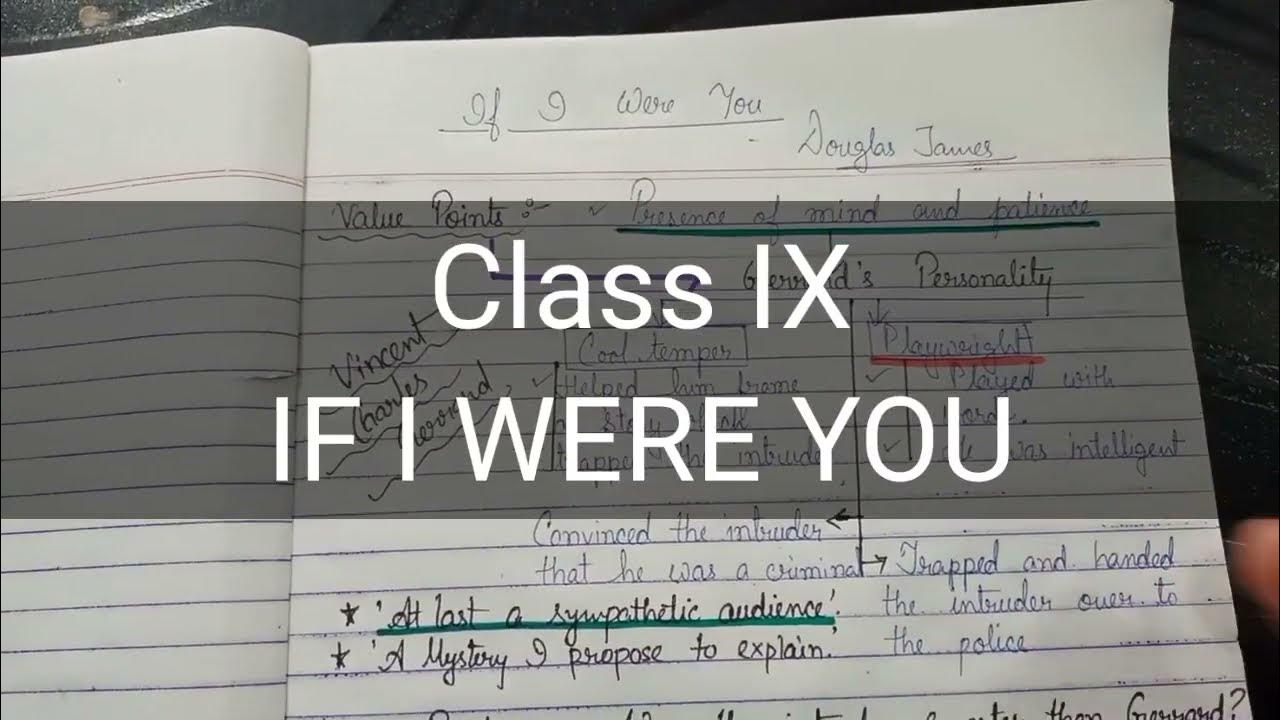 If I Were You
- Douglas James
Value Points :- ✓ Presence of mind and patience
Class IX
Gerrard's Personality
Vincent
Charles
Gerrard
Cool temper
Playwright
✓ Helped him frame
✓ Played with
a story
IF I WERE YOU
trapped the intruder
✓ He was intelligent
Convinced the intruder
that he was a criminal
→ Trapped and handed
the intruder over to
the police
★ 'At last a sympathetic audience'.
★ 'A Mystery I propose to explain.'
than Gerrard?